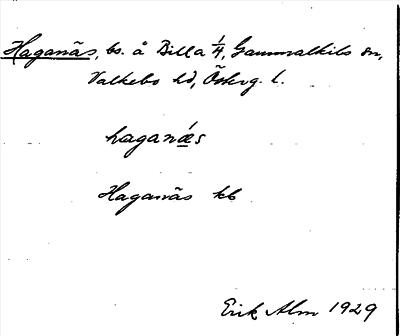 Haganäs, bs. å Billa 1/4, Gammalkils sn,
Valkebo hd, Östrg. l.
haganæ̀s
Haganäs kb
Erik Alm 1929